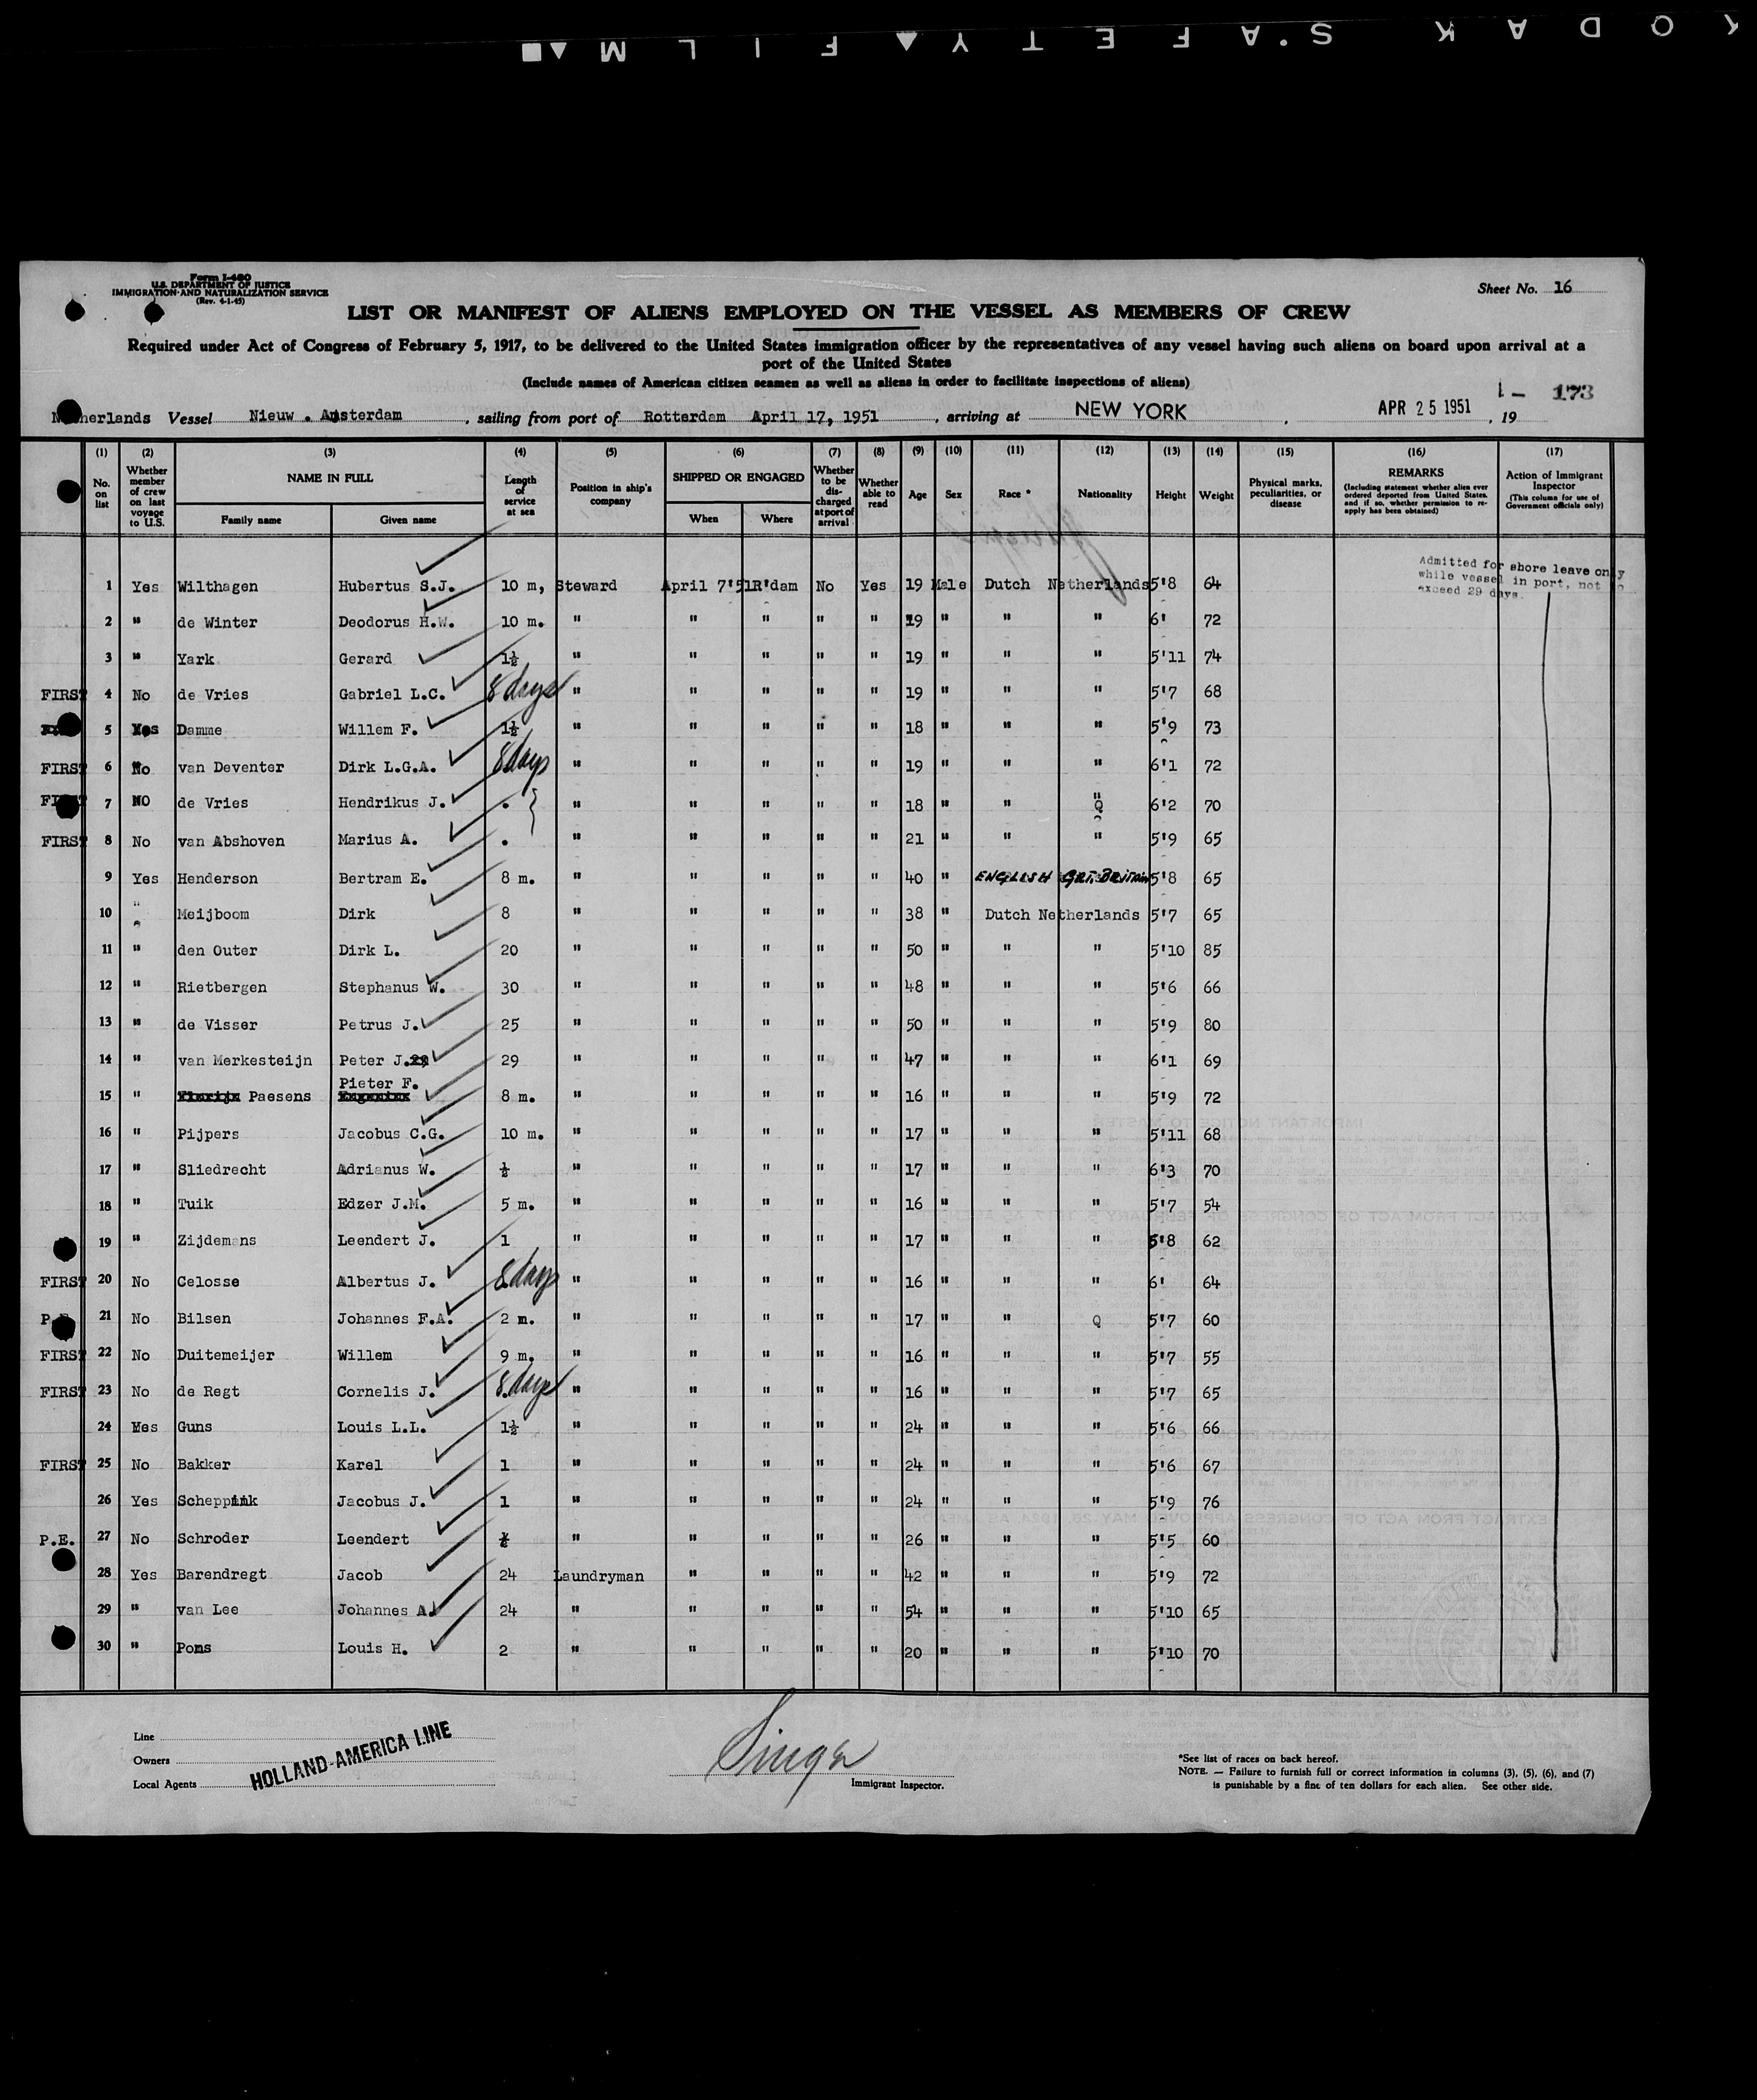 KODAK S.A.F.E.T.Y. ▲ F I L M ▲■
Form I-480
U.S. DEPARTMENT OF JUSTICE
IMMIGRATION AND NATURALIZATION SERVICE
(Rev. 4-1-45)
Sheet No. 16
LIST OR MANIFEST OF ALIENS EMPLOYED ON THE VESSEL AS MEMBERS OF CREW
Required under Act of Congress of February 5, 1917, to be delivered to the United States immigration officer by the representatives of any vessel having such aliens on board upon arrival at a
port of the United States
(Include names of American citizen seamen as well as aliens in order to facilitate inspections of aliens)
1 - 173
Netherlands Vessel Nieuw . Amsterdam , sailing from port of Rotterdam April 17, 1951 , arriving at NEW YORK , APR 25 1951 , 19
(1) No. on list
(2) Whether member of crew on last voyage to U.S.
(3) NAME IN FULL
Family name Given name
(4) Length of service at sea
(5) Position in ship's company
(6) SHIPPED OR ENGAGED
When Where
(7) Whether to be discharged at port of arrival
(8) Whether able to read
(9) Age
(10) Sex
(11) Race *
(12) Nationality
(13) Height
(14) Weight
(15) Physical marks, peculiarities, or disease
(16) REMARKS (Including statement whether alien ever ordered deported from United States, and if so, whether permission to reapply has been obtained)
(17) Action of Immigrant Inspector (This column for use of Government officials only)
Admitted for shore leave only
while vessel in port, not to
exceed 29 days.
1 Yes Wilthagen Hubertus S.J. 10 m, Steward April 7'51 R'dam No Yes 19 Male Dutch Netherlands 5'8 64
2 " de Winter Deodorus H.W. 10 m. " " " " " 19 " " " 6' 72
3 " Yark Gerard 1½ " " " " " 19 " " " 5'11 74
FIRST 4 No de Vries Gabriel L.C. 8 days " " " " " 19 " " " 5'7 68
5 Yes Damme Willem F. 1½ " " " " " 18 " " " 5'9 73
FIRST 6 No van Deventer Dirk L.G.A. 8 days " " " " " 19 " " " 6'1 72
FIRST 7 NO de Vries Hendrikus J. . " " " " " 18 " " " 6'2 70
FIRST 8 No van Abshoven Marius A. . " " " " " 21 " " " 5'9 65
9 Yes Henderson Bertram E. 8 m. " " " " " 40 " ENGLISH GRT. BRITAIN 5'8 65
10 " Meijboom Dirk 8 " " " " " 38 " Dutch Netherlands 5'7 65
11 " den Outer Dirk L. 20 " " " " " 50 " " " 5'10 85
12 " Rietbergen Stephanus W. 30 " " " " " 48 " " " 5'6 66
13 " de Visser Petrus J. 25 " " " " " 50 " " " 5'9 80
14 " van Merkesteijn Peter J. 29 " " " " " 47 " " " 6'1 69
15 " Paesens Pieter F. 8 m. " " " " " 16 " " " 5'9 72
16 " Pijpers Jacobus C.G. 10 m. " " " " " 17 " " " 5'11 68
17 " Sliedrecht Adrianus W. ½ " " " " " 17 " " " 6'3 70
18 " Tuik Edzer J.M. 5 m. " " " " " 16 " " " 5'7 54
19 " Zijdemans Leendert J. 1 " " " " " 17 " " " 5'8 62
FIRST 20 No Celosse Albertus J. 8 days " " " " " 16 " " " 6' 64
21 No Bilsen Johannes F.A. 2 m. " " " " " 17 " " Q 5'7 60
FIRST 22 No Duitemeijer Willem 9 m. " " " " " 16 " " " 5'7 55
FIRST 23 No de Regt Cornelis J. 8 days " " " " " 16 " " " 5'7 65
24 Yes Guns Louis L.L. 1½ " " " " " 24 " " " 5'6 66
FIRST 25 No Bakker Karel 1 " " " " " 24 " " " 5'6 67
26 Yes Scheppink Jacobus J. 1 " " " " " 24 " " " 5'9 76
P.E. 27 No Schroder Leendert ½ " " " " " 26 " " " 5'5 60
28 Yes Barendregt Jacob 24 Laundryman " " " " 42 " " " 5'9 72
29 " van Lee Johannes A. 24 " " " " " 54 " " " 5'10 65
30 " Pons Louis H. 2 " " " " " 20 " " " 5'10 70
Line
Owners
Local Agents
HOLLAND-AMERICA LINE
Singer
Immigrant Inspector.
*See list of races on back hereof.
NOTE. — Failure to furnish full or correct information in columns (3), (5), (6), and (7)
is punishable by a fine of ten dollars for each alien. See other side.